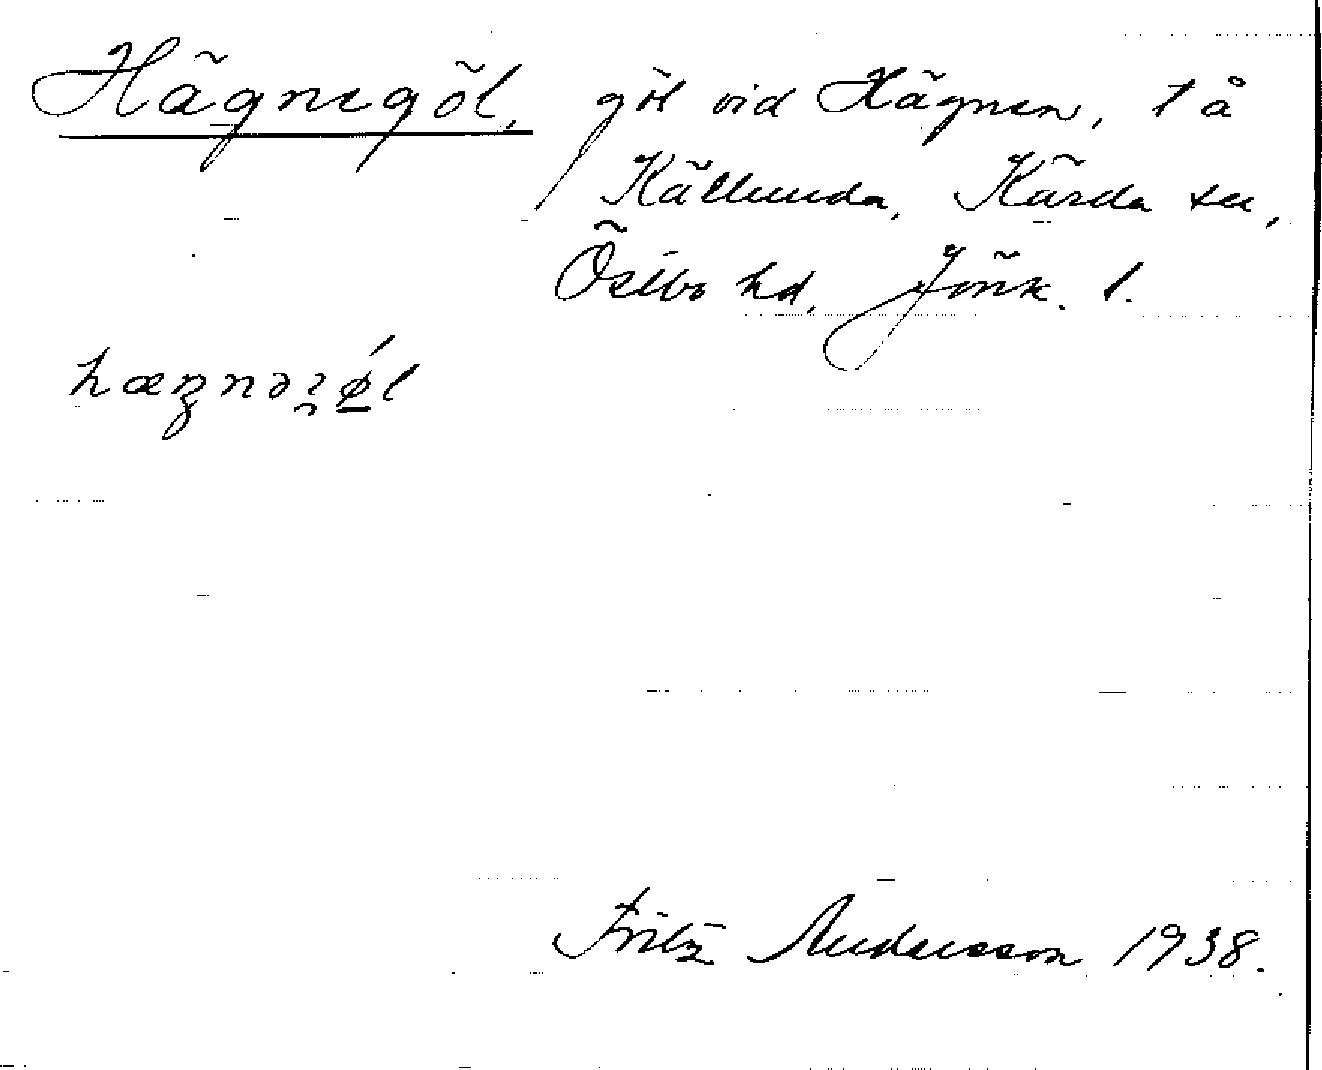 Hägnegöl, göl vid Hägnen, på
Källunda, Kärda sn,
Östbo hd, Jönk. l.
Fritz Andersson 1938.